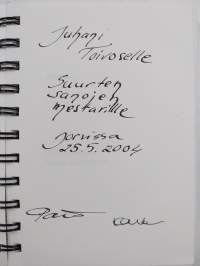 Juhani
Toivoselle
Suurten
sanojen
mestarille
25.5.2004